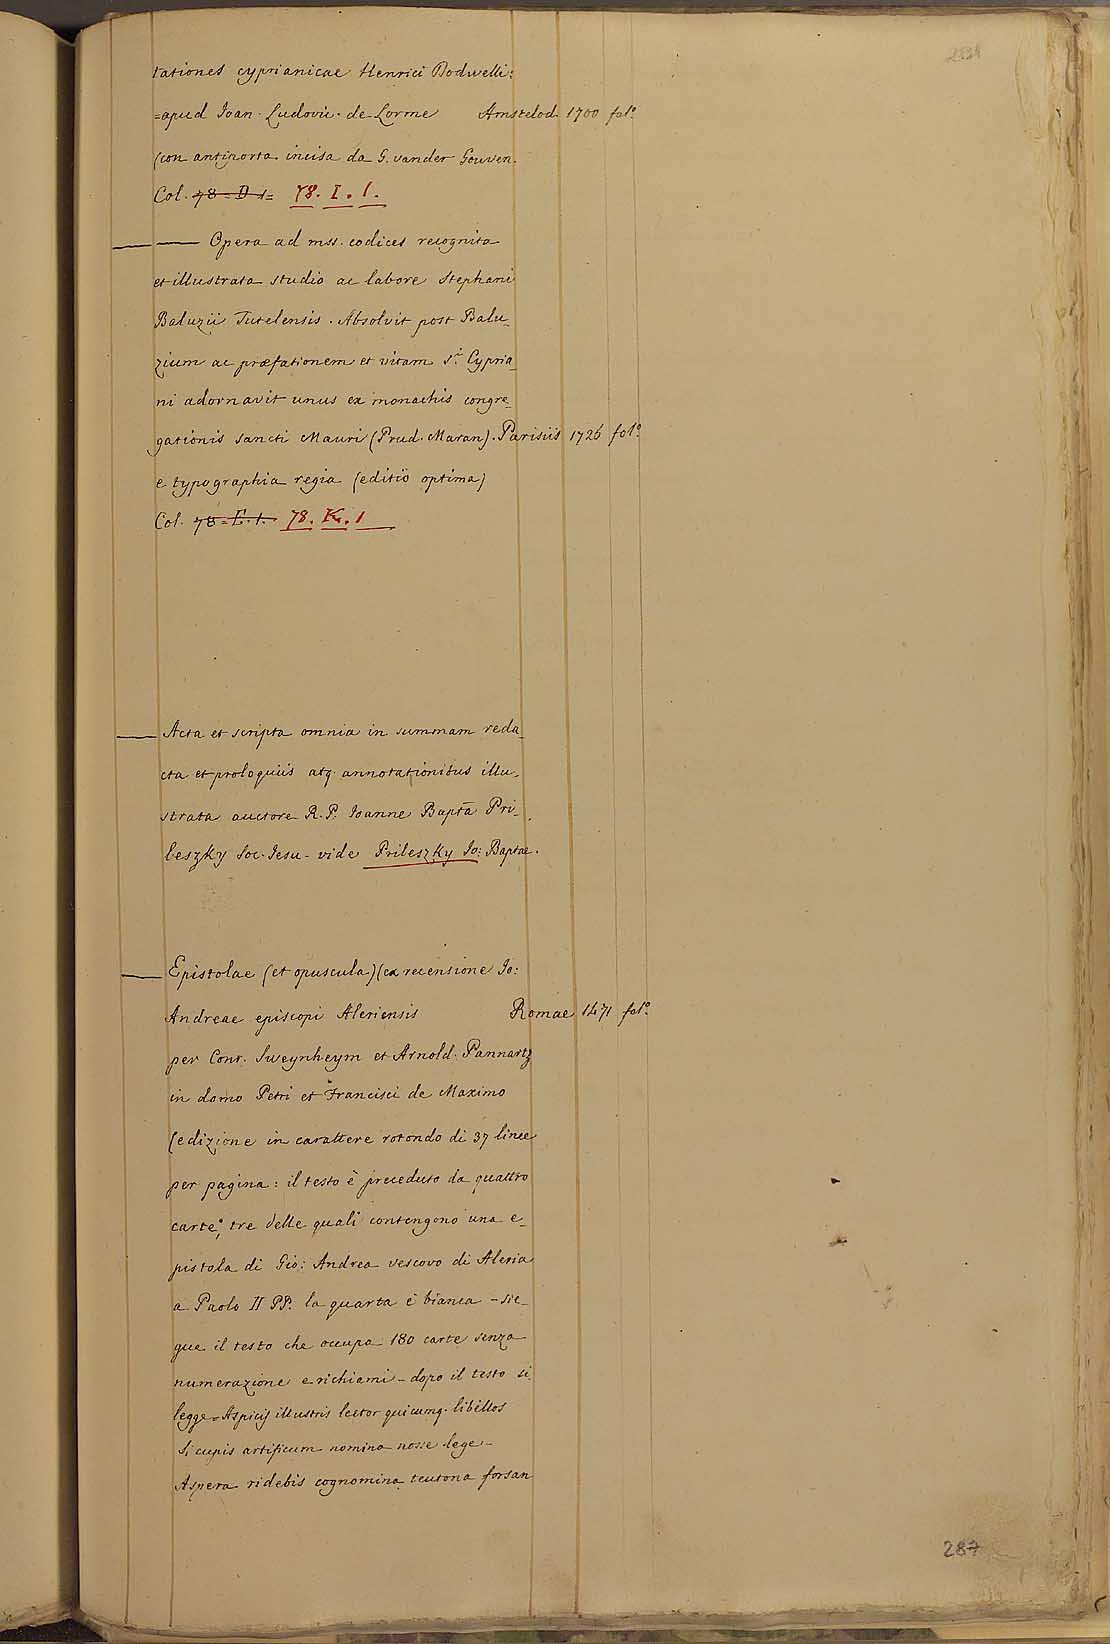 281
tationes cyprianicae Henrici Dodwelli:
=apud Joan. Ludovic. de Lorme Amstelod. 1700 fol.º
(con antiporta incisa da G. vander Gouven.
Col. 78=D 1= 78. I. 1.
—— —— Opera ad mss. codices recognita
et illustrata studio ac labore Stephani
Baluzii Tutelensis. Absolvit post Balu_
zium ac præfationem et vitam S.i Cypria_
ni adornavit unus ex monachis congre_
gationis sancti Mauri (Prud. Maran). Parisiis 1726 fol.º
e typographia regia (editio optima)
Col. 78=E. 1. 78. K. 1
—— Acta et scripta omnia in summam reda_
cta et proloquiis atq. annotationibus illu_
strata auctore R. P. Ioanne Bapta Pri_
leszky Soc. Iesu - vide Prileszky Io: Baptae.
—— Epistolae (et opuscula) (ex recensione Io:
Andreae episcopi Aleriensis Romae 1471 fol.º
per Conr. Sweynheym et Arnold. Pannartz
in domo Petri et Francisci de Maximo
(edizione in carattere rotondo di 37 linee
per pagina: il testo è preceduto da quattro
carte; tre delle quali contengono una e_
pistola di Gio: Andrea vescovo di Aleria
a Paolo II PP. la quarta è bianca - sie_
gue il testo che occupa 180 carte senza
numerazione e richiami - dopo il testo si
legge = Aspicis illustris lector quicumq. libellos
Si cupis artificum nomina nosse lege -
Aspera ridebis cognomina teutona forsan
287